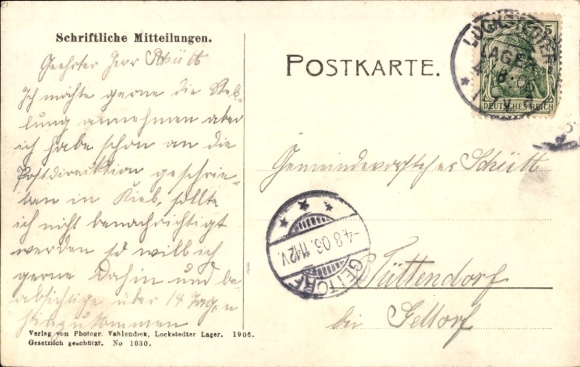 Schriftliche Mitteilungen.
Geehrter Herr Schütt
Ich möchte gerne die Stel-
lung annehmen aber
ich habe schon an die
Postdirecktion geschrie-
ben in Kiel, sollte
ich nicht benachrichtigt
werden so will ich
gerne Dahin und be-
absichtige über 14 Tagen
hinzukommen
Verlag von Photogr. Vahlendick, Lockstedter Lager. 1906.
Gesetzlich geschützt. No 1030.
POSTKARTE.
LOCKSTEDTER
LAGER
DEUTSCHES REICH
5
Gemeindevorsteher Schütt
-4.8.06. 11-12V.
GETTORF
Tüttendorf
bei Gettorf